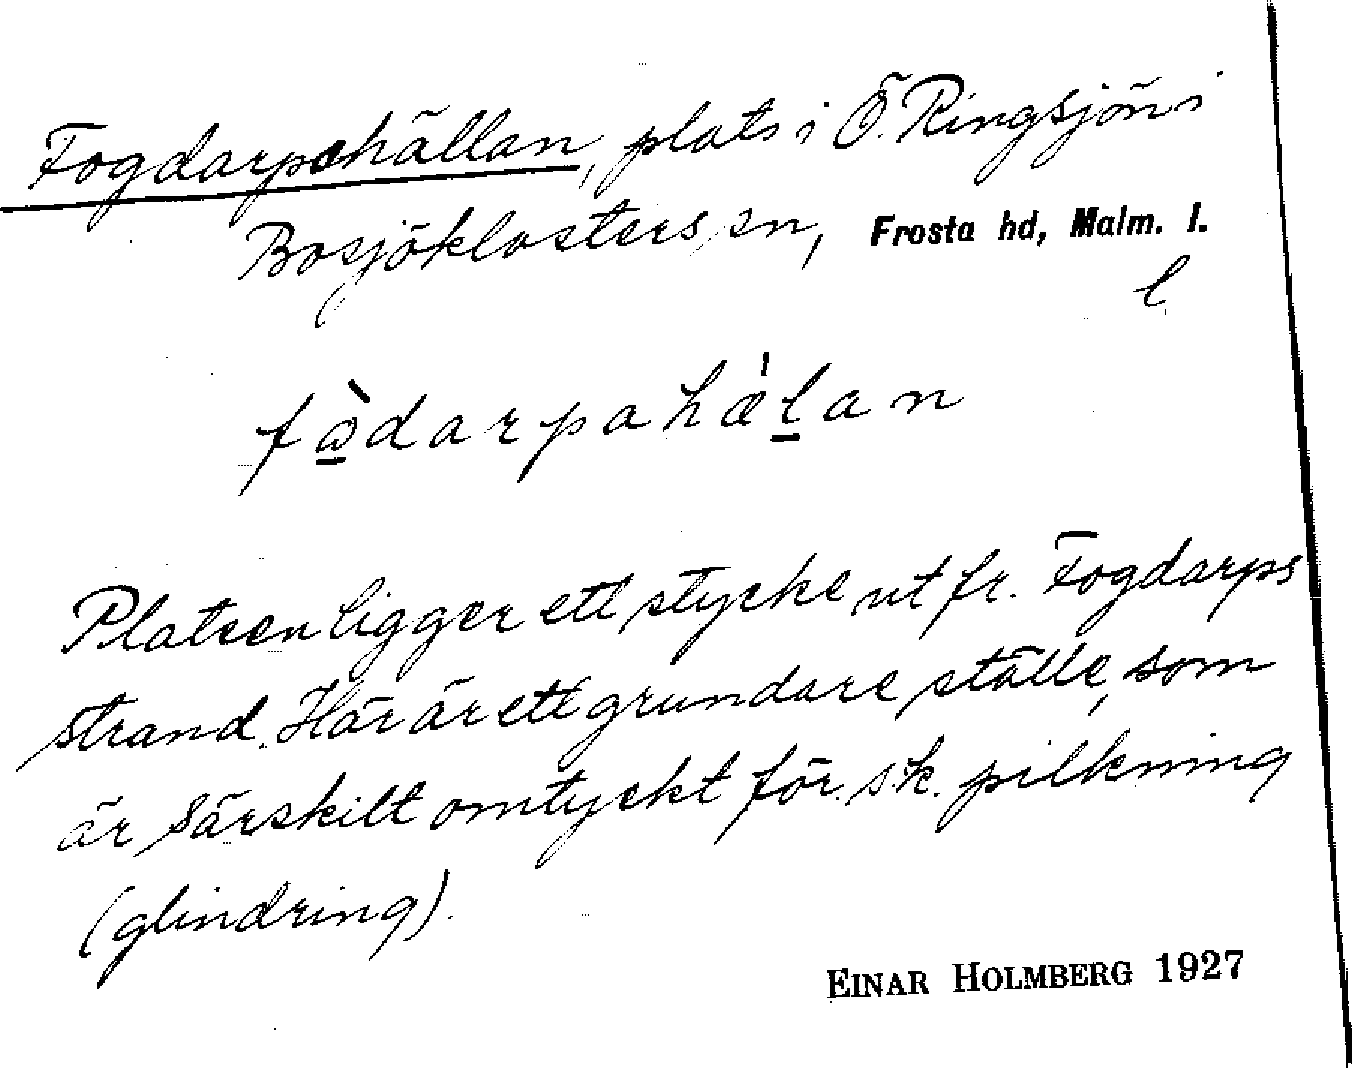 Fogdarpahällan, plats i Ö. Ringsjön i
Bosjöklosters sn, Frosta hd, Malm. l.
l
fòdarpahæ̍lan
Platsen ligger ett stycke ut fr. Fogdarps
strand. Här är ett grundare ställe, som
är särskilt omtyckt för s.k. pilkning
(glindring).
EINAR HOLMBERG 1927